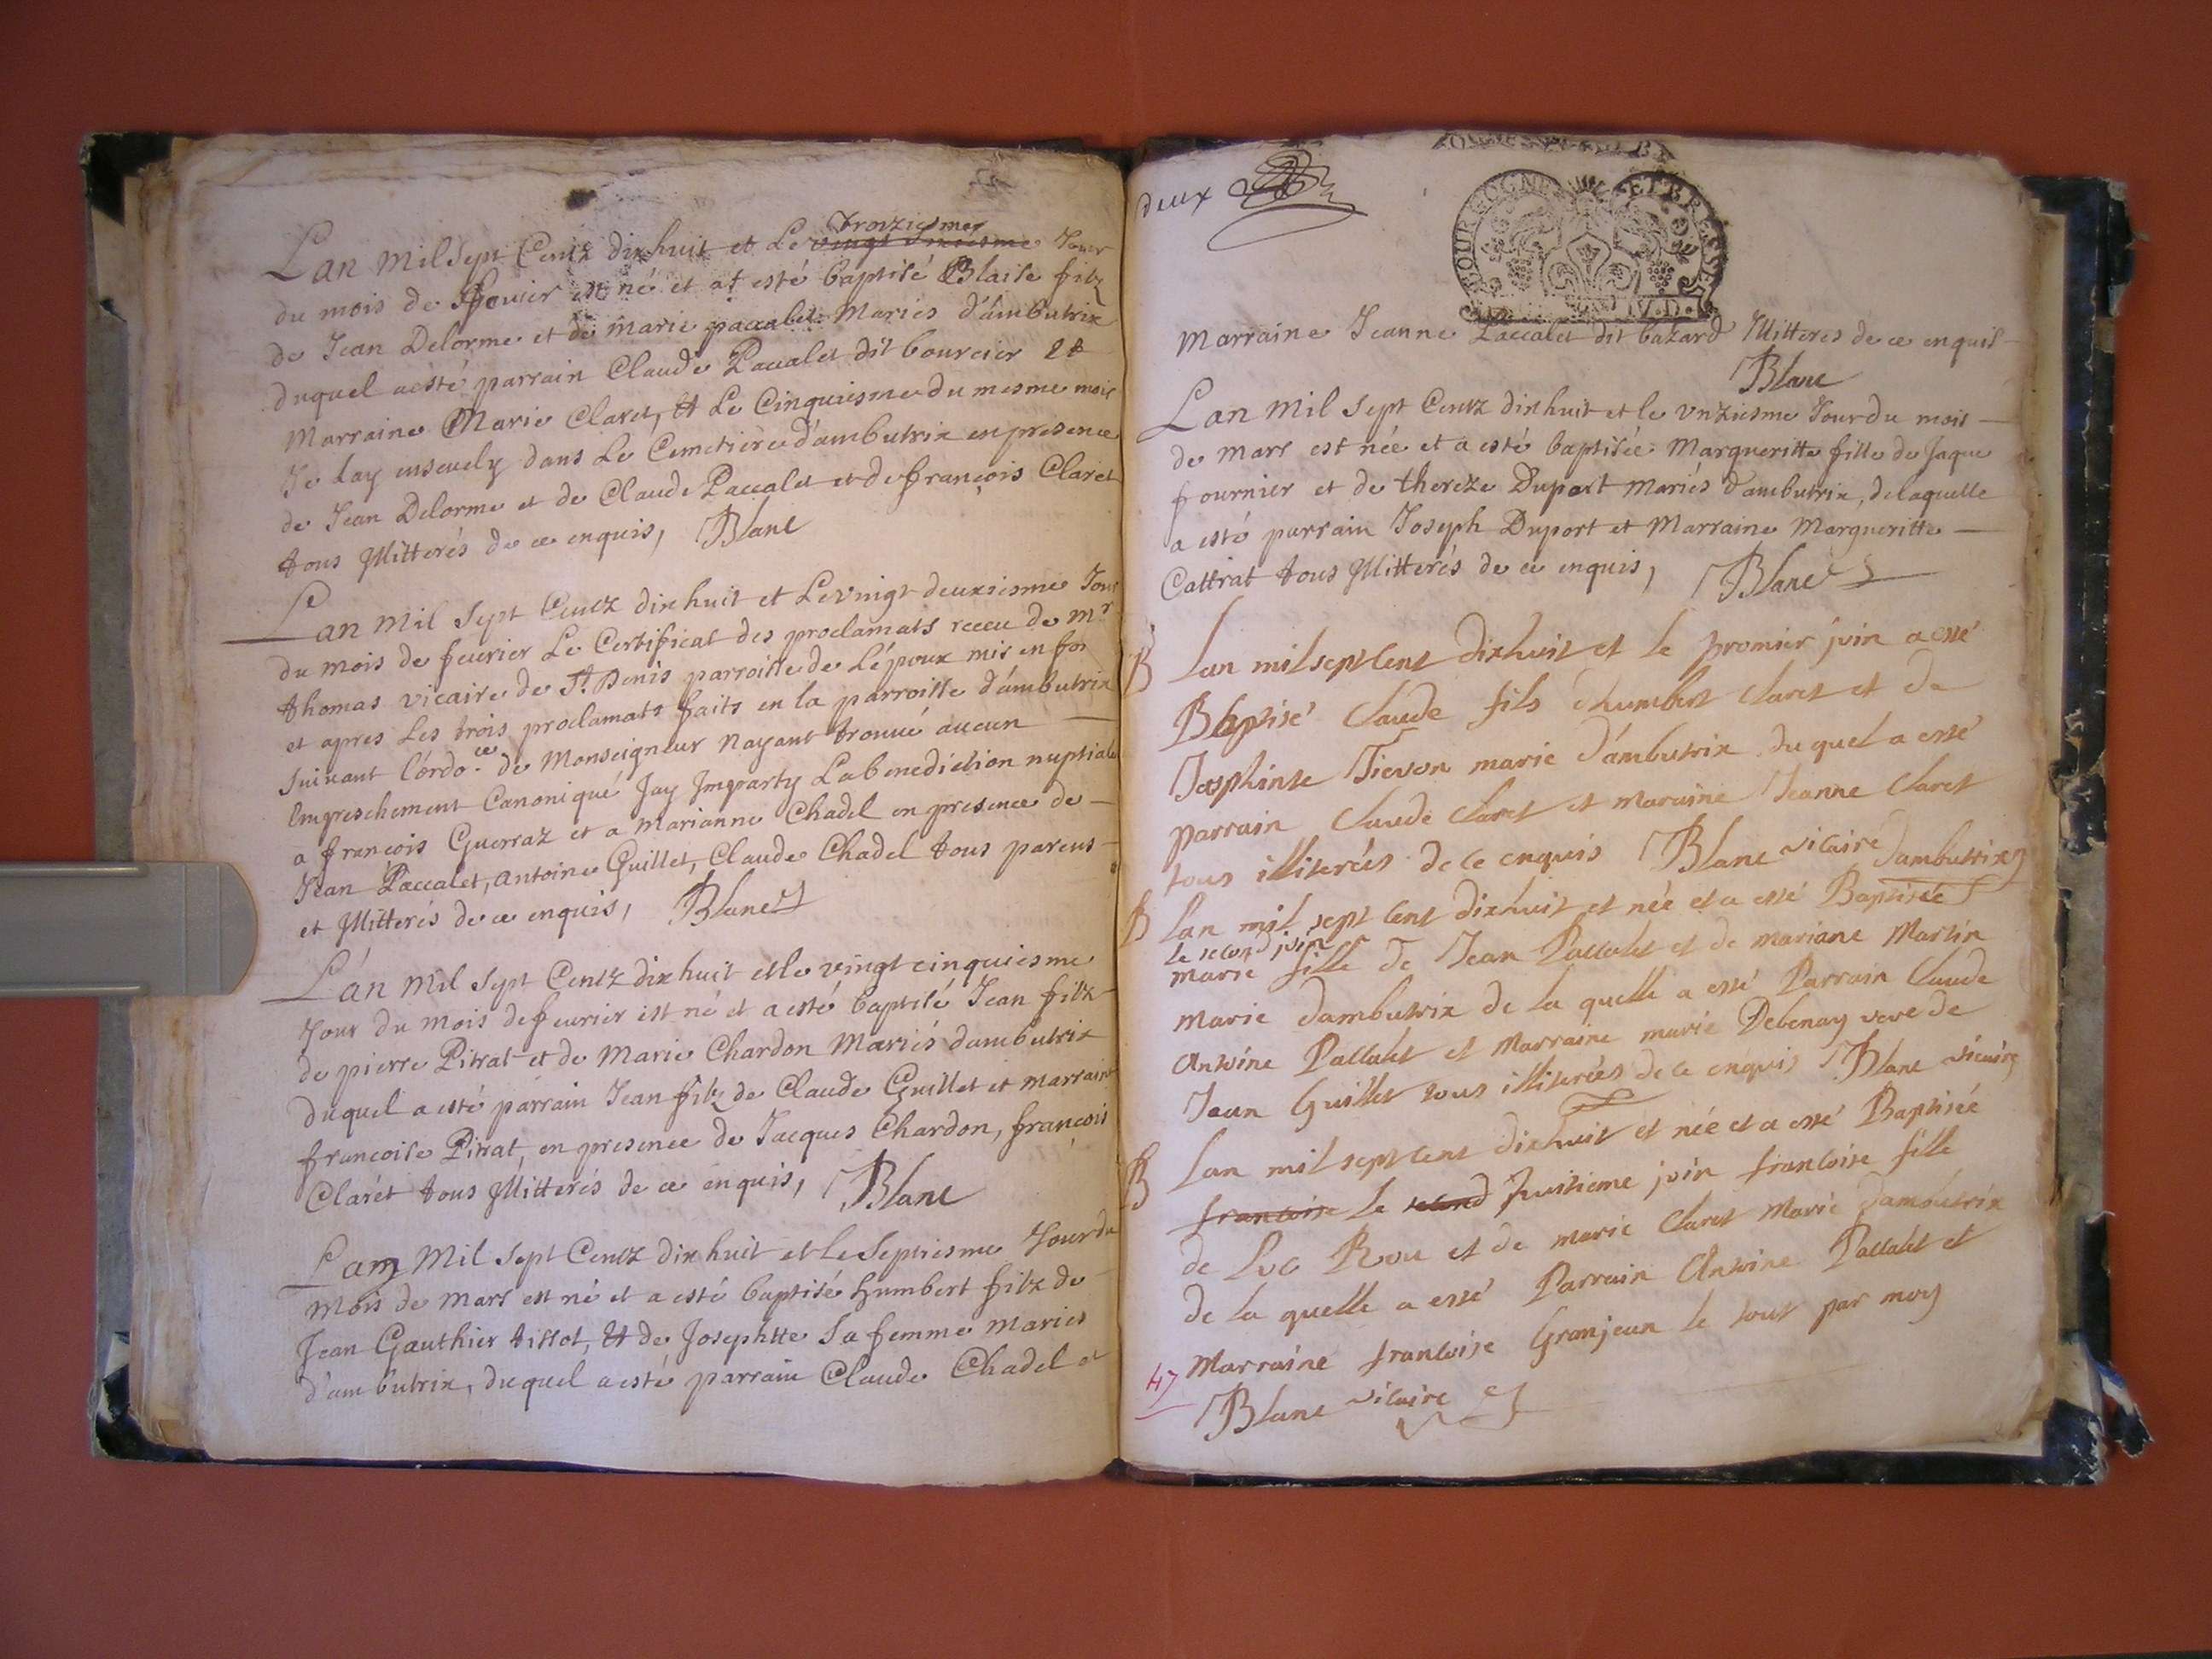 Lan Mil Sept Centz dixhuit et Le troiziesme vingt Jour
du mois de feuier est né et at esté baptisé Blaise filz
de Jean Delorme et de Marie paccalet Mariés d'ambutrix
duquel a esté parrain Claude Paccalet dit bourcier et
Marraine Marie Claret, Et Le Cinquiesme du mesme mois
Je Lay enseuely dans Le Cemetiere d'ambutrix en presence
de Jean Delorme et de Claude Paccalet et de françois Claret
tous Illitterés de ce enquis, Blanc
Lan Mil Sept Centz dix huit et Le vingt deuxiesme Jour
du mois de feurier Le Certificat des proclamats receu de Mr
thomas vicaire de St Denis parroisse de L'époux mis en foi
et apres Les trois proclamats faits en la parroisse d'ambutrix
suivant l'ordo.ce de Monseigneur Nayant trouué aucun
Empreschement Canonique Jay Imparty La benediction nuptiale
a françois Guerraz et a Marianne Chadel en presence de
Jean Paccalet, antoine Guillet, Claude Chadel tous parens
et Illitterés de ce enquis, Blanc
L'an Mil Sept Centz dix huit et le vingt cinquiesme
Jour du mois de feurier est né et a esté baptisé Jean filz
de pierre Pitrat et de Marie Chardon Mariés dambutrix
duquel a esté parrain Jean filz de Claude Guillet et marraine
francoise Pitrat, en presence de Jacques Chardon, françois
Claret tous Illitterés de ce enquis, Blanc
Lan Mil Sept Centz dix huit et le Septiesme Jour du
Mois de Mars est né et a esté baptisé humbert filz de
Jean Gauthier tissot, Et de Josephtte Sa femme Mariés
d'ambutrix, duquel a esté parrain Claude Chadel et
deux
BOURGOGNE ET BRESSE
Marraine Jeanne Paccalet dit bazard Illitteres de ce enquis
Blanc
Lan Mil Sept Centz dixhuit et le vnziesme Jour du mois
de Mars est née et a esté baptisée Margueritte fille de Jaque
fournier et de thereze Duport Mariés d'ambutrix, delaquelle
a esté parrain Joseph Duport et Marraine Margueritte
Cattrat tous Illitterés de ce enquis, Blanc
B Lan mil sept Cent dixhuit et le premier juin a esté
Baptisé Claude fils d'humbert Claret et de
Josphinte Tievon marie d'ambutrix duquel a esté
parrain Claude Claret et maraine Jeanne Claret
tous illiterées de ce enquis Blanc vicaire dambutrix
B Lan mil sept Cent dixhuit et née et a esté Baptisée
le second juin
marie fille de Jean Paccalet et de mariane Martin
marie dambutrix de la quelle a esté Parrain Claude
Antoine Paccalet et Marraine marie Debenay veve de
Jean Guillet tous illiterées de ce enquis Blanc vicaire
B Lan mil sept Cent dixhuit et née et a esté Baptisée
francoise le second huitieme juin francoise fille
de Luc Rou et de marie Claret Marie dambutrix
de la quelle a esté Parrain Antoine Paccalet et
Marraine francoise Granjean le tout par moy
47
Blanc vicaire